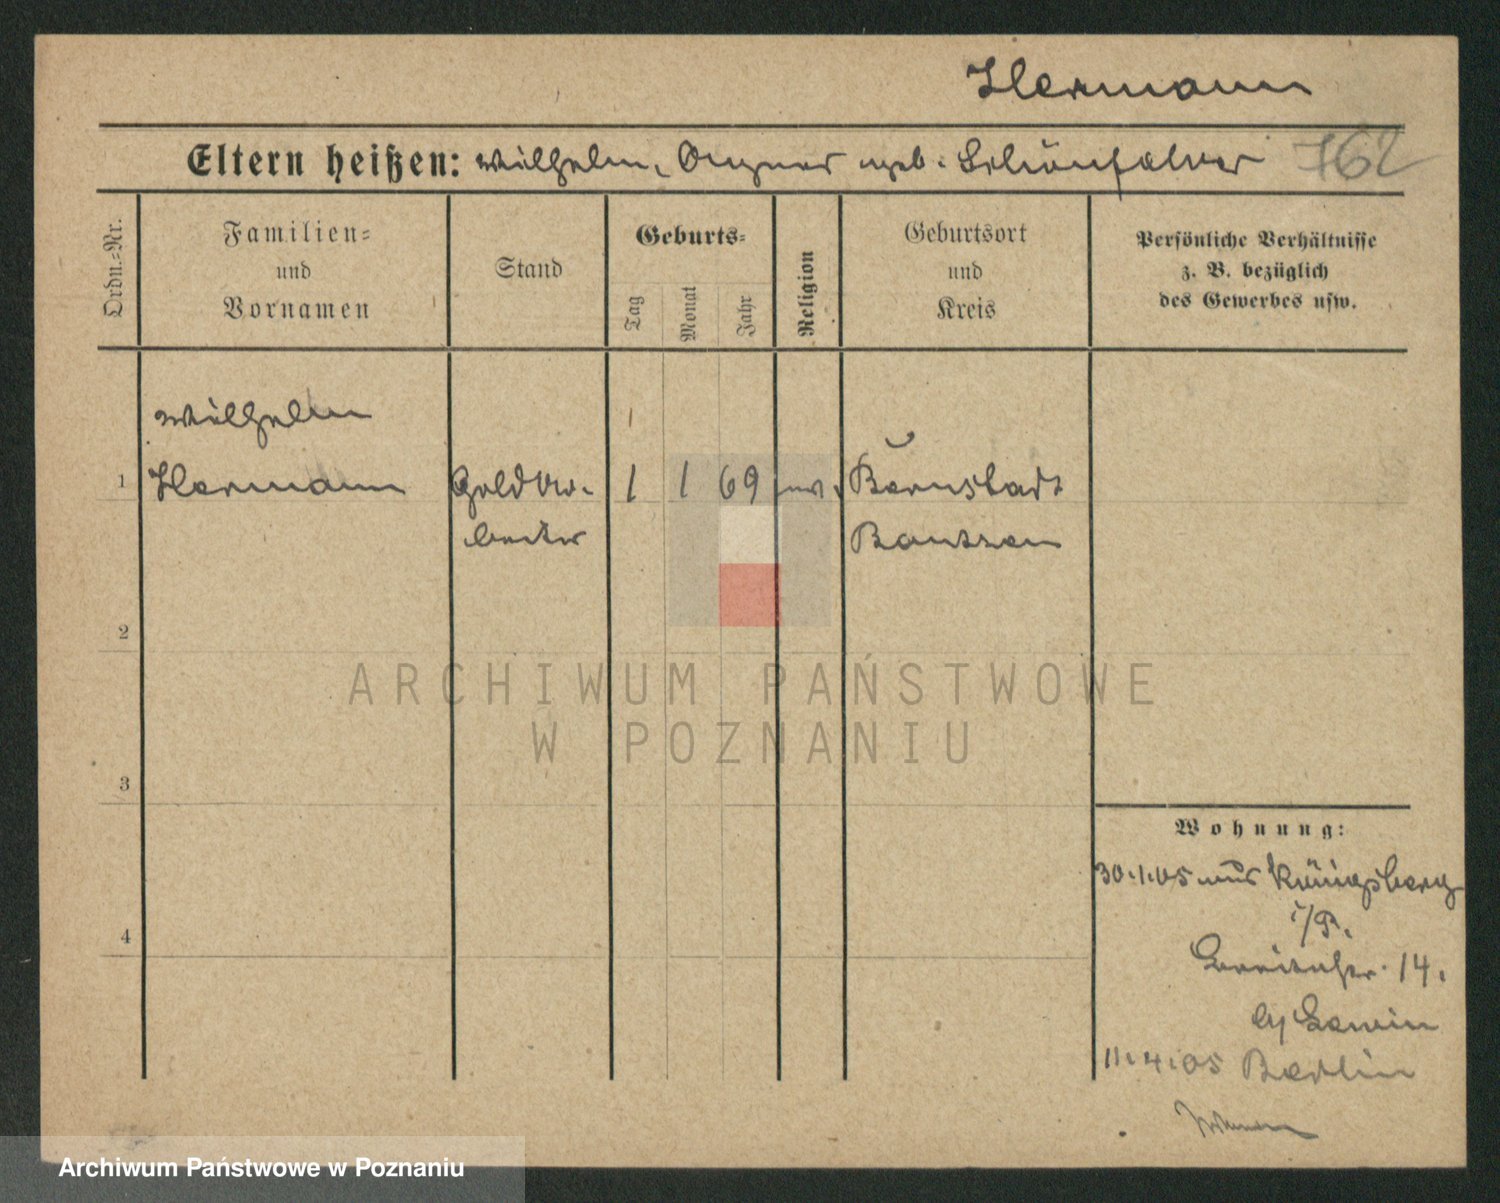 Hermann
Eltern heißen: Wilhelm, geb. Schönfelder 762
Ordn.=Nr.
Familien=
und
Vornamen
Stand
Geburts=
Tag
Monat
Jahr
Religion
Geburtsort
und
Kreis
Persönliche Verhältnisse
z. B. bezüglich
des Gewerbes usw.
Wilhelm
1 Hermann Goldar- 1 1 69 ev. Bernstadt
beiter Bautzen
2
3
4
ARCHIWUM PAŃSTWOWE
W POZNANIU
Wohnung:
30.1.05 aus Königsberg
i/P.
14.
11.4.05 Berlin
Archiwum Państwowe w Poznaniu